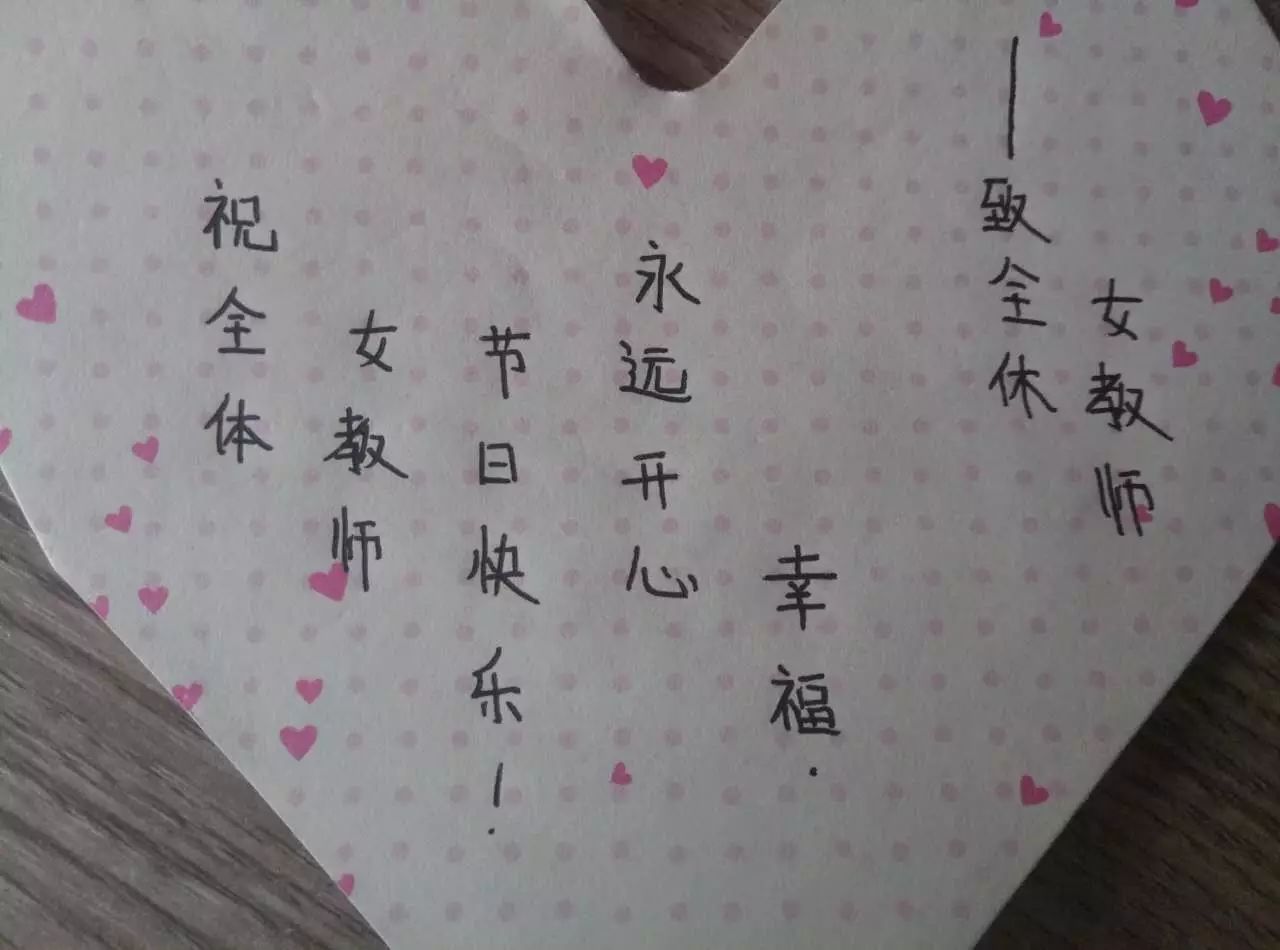 祝全体
女教师
节日快乐！
永远开心
幸福.
——致全休
女教师